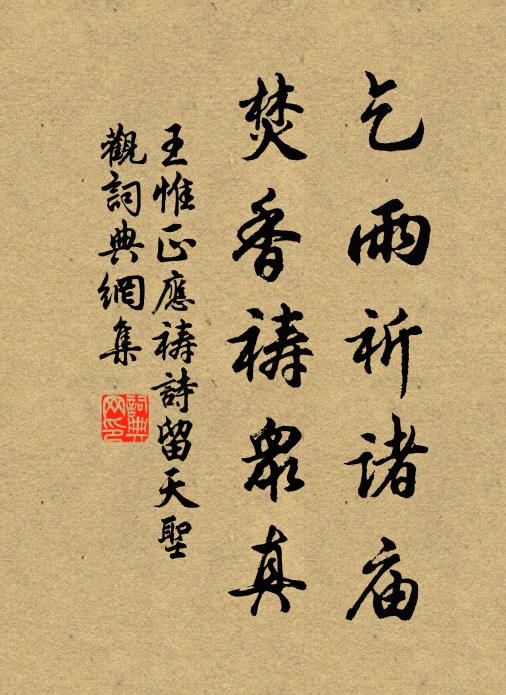 乞雨祈诸庙
焚香祷衆真
王惟正應祷詩留天聖
觀詞典網集
詞典网印